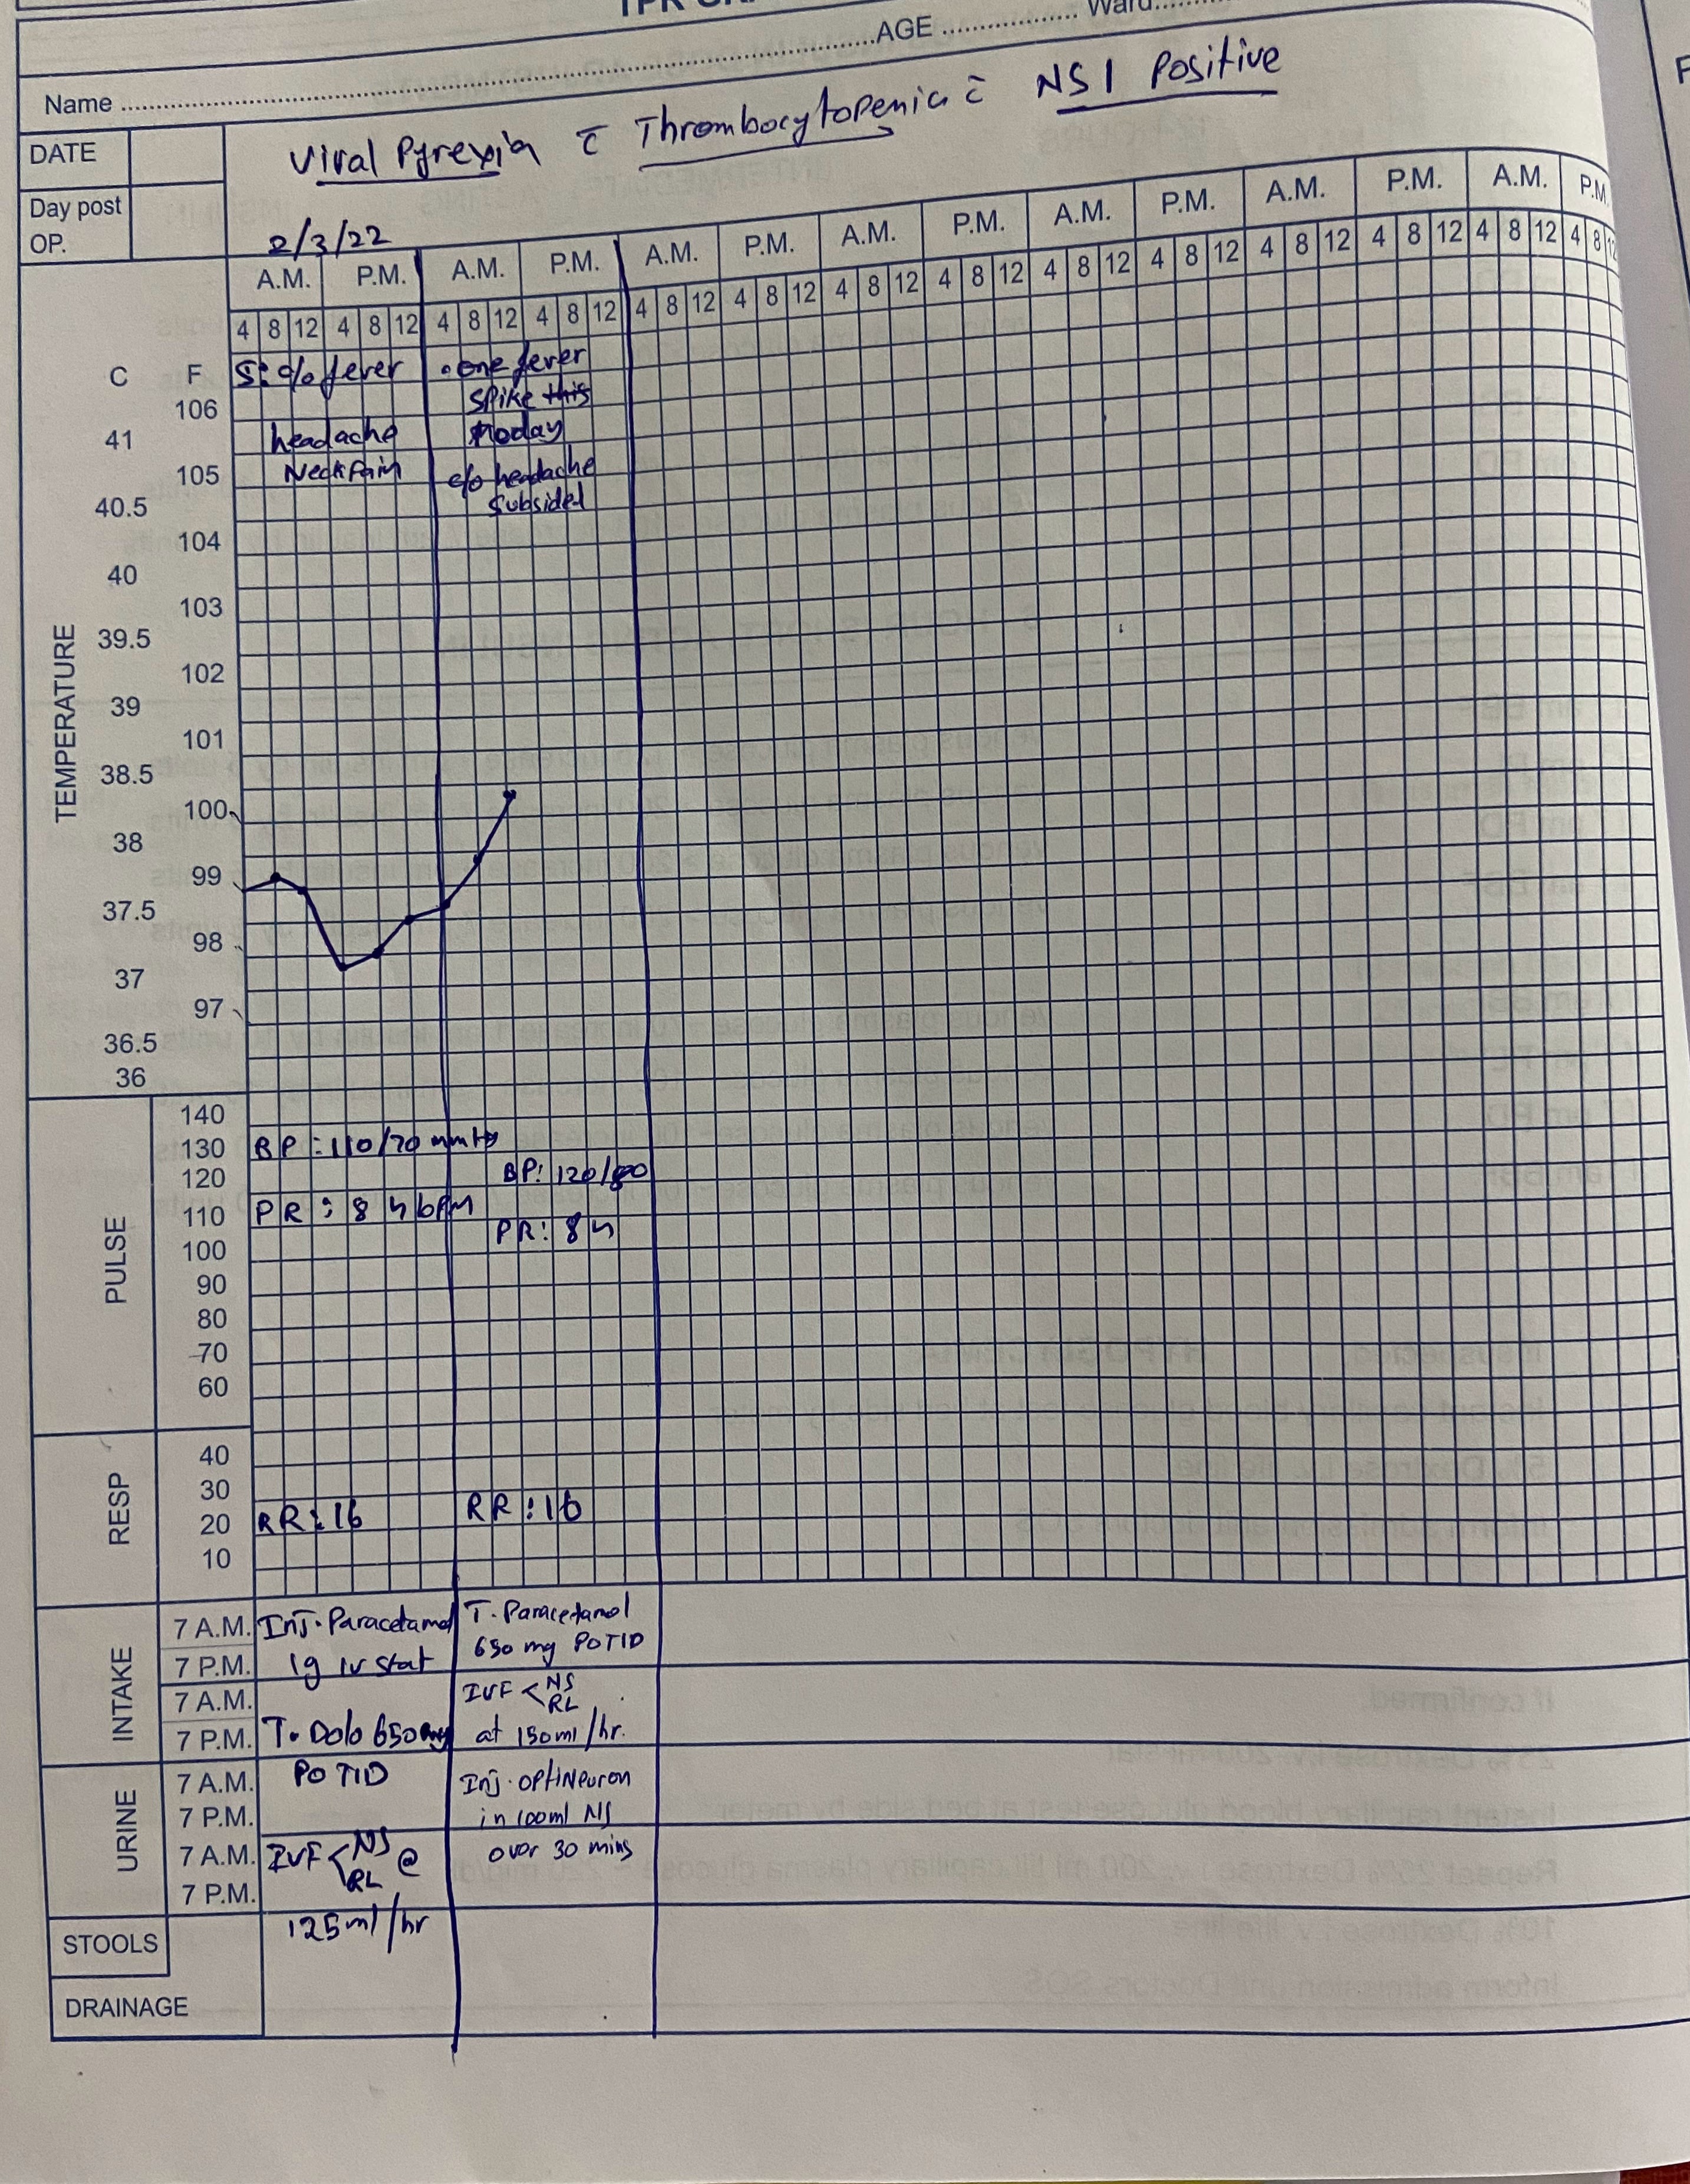 AGE ................ Ward
Name ................
DATE
Viral Pyrexia c̄ Thrombocytopenia c̄ NS1 Positive
Day post
OP.
2/3/22
A.M. P.M. A.M. P.M. A.M. P.M. A.M. P.M. A.M. P.M. A.M. P.M. A.M. P.M.
4 8 12 4 8 12 4 8 12 4 8 12 4 8 12 4 8 12 4 8 12 4 8 12 4 8 12 4 8 12 4 8 12 4 8 12 4 8 12 4 8 12
TEMPERATURE
C F
S: c/o fever
headache
Neck Pain
. one fever
spike this
today
c/o headache
subsided
106
41
105
40.5
104
40
103
39.5
102
39
101
38.5
100
38
99
37.5
98
37
97
36.5
36
PULSE
140
130 BP: 110/70 mmHg
120 BP: 120/80
110 PR: 84 bpm
PR: 84
100
90
80
70
60
RESP
40
30
20 RR: 16 RR: 16
10
INTAKE
7 A.M.
7 P.M.
7 A.M.
7 P.M.
URINE
7 A.M.
7 P.M.
7 A.M.
7 P.M.
STOOLS
DRAINAGE
Inj. Paracetamol
1g IV stat
T. Dolo 650mg
PO TID
IVF < NS @
RL
125ml/hr
T. Paracetamol
650 mg PO TID
IVF < NS
RL
at 150ml/hr.
Inj. optineuron
in 100ml NS
over 30 mins